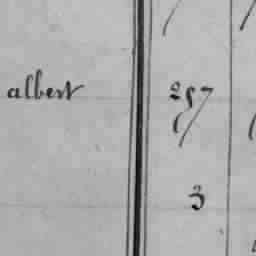 albert 257
3